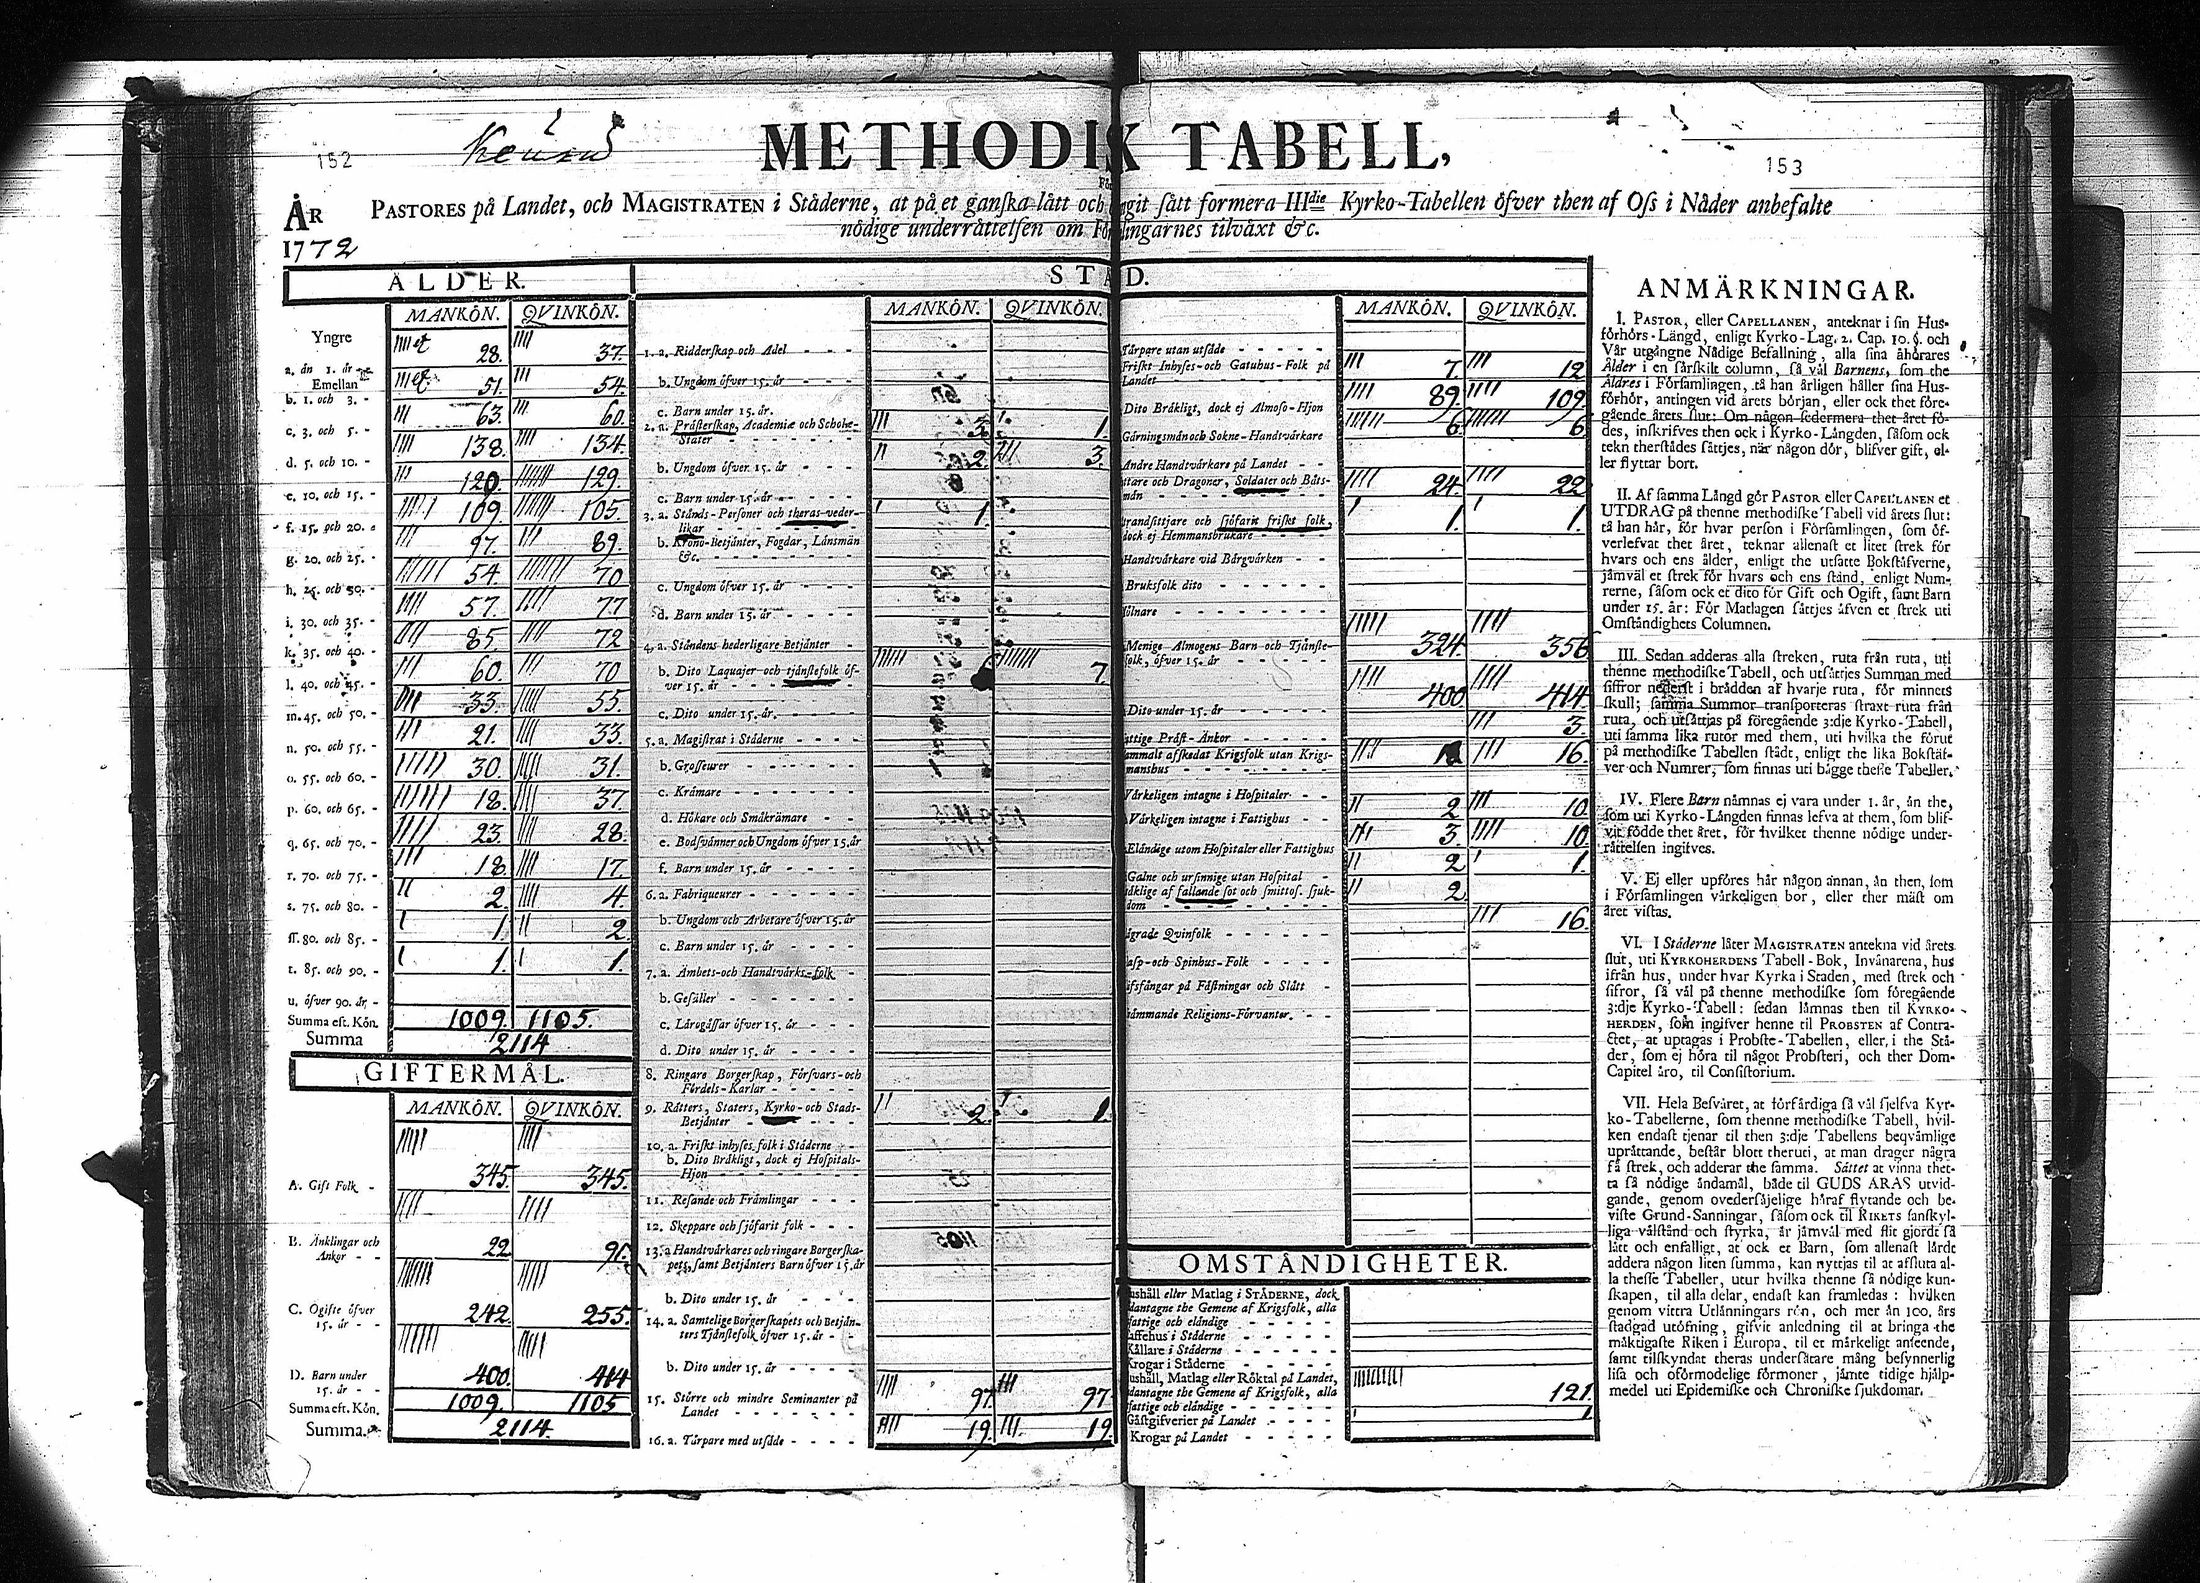 152
METHODIK TABELL,
153
ÅR
PASTORES på Landet, och MAGISTRATEN i Städerne, at på et ganska lätt och git sätt formera IIIdie Kyrko-Tabellen öfver then af Oss i Nåder anbefalte
1772
nödige underrättelsen om Församlingarnes tilväxt &c.
ÅLDER.
MANKÖN. QVINKÖN.
Yngre
a. än 1. år 28. 37.
Emellan
b. 1. och 3. - 51. 54.
c. 3. och 5. - 63. 60.
d. 5. och 10. - 138. 134.
e. 10. och 15. - 120. 129.
f. 15. och 20. 109. 105.
g. 20. och 25. - 97. 89.
h. 25. och 30. - 54. 70
i. 30. och 35. - 57. 77
k. 35. och 40. - 85. 72
l. 40. och 45. - 60. 70
m. 45. och 50. - 33. 55.
n. 50. och 55. - 21. 33.
o. 55. och 60. - 30. 31.
p. 60. och 65. - 18. 37.
q. 65. och 70. - 23. 28.
r. 70. och 75. - 18. 17.
s. 75. och 80. - 2. 4.
ss. 80. och 85. - 1. 2.
t. 85. och 90. - 1. 1.
u. öfver 90. år. -
Summa eft. Kön. 1009. 1105.
Summa 2114
GIFTERMÅL.
MANKÖN. QVINKÖN.
A. Gift Folk - 345. 345.
B. Änklingar och
Änkor - - 22. 91.
C. Ogifte öfver
15. år - - 242. 255.
D. Barn under
15. år - - 400. 414
Summa eft. Kön. 1009. 1105
Summa. 2114.
STÅD.
MANKÖN. QVINKÖN.
1. a. Ridderskap och Adel - - -
b. Ungdom öfver 15. år - - -
c. Barn under 15. år.
2. a. Prästerskap, Academiæ och Schole-
Stater - - - - - - 3. 1.
b. Ungdom öfver 15. år - - - 2. 3.
c. Barn under 15. år - - - -
3. a. Stånds-Personer och theras veder-
likar - - - - - - 1.
b. Krono-Betjänter, Fogdar, Länsmän
&c.
c. Ungdom öfver 15. år - - -
d. Barn under 15. år - - - -
4. a. Ståndens hederligare Betjänter -
b. Dito Laquajer och tjänstefolk öf-
ver 15. år - - - - - 7.
c. Dito under 15. år. - - - -
5. a. Magistrat i Städerne - - -
b. Grosseurer - - - - - -
c. Krämare - - - - - -
d. Hökare och Småkrämare - -
e. Bodsvänner och Ungdom öfver 15. år
f. Barn under 15. år - - - -
6. a. Fabriqueurer - - - - -
b. Ungdom och Arbetare öfver 15. år
c. Barn under 15. år - - - -
7. a. Ämbets- och Handtvärks-folk -
b. Gesäller - - - - - - -
c. Lärogåssar öfver 15. år - - -
d. Dito under 15. år - - - -
8. Ringare Borgerskap, Försvars- och
Fördels-Karlar - - - - -
9. Rätters, Staters, Kyrko- och Stads-
Betjänter - - - - 2. 1.
10. a. Friskt inhyses folk i Städerne - -
b. Dito Bräkligt, dock ej Hospitals-
Hjon - - - - - - -
11. Resande och Främlingar - - -
12. Skeppare och sjöfarit folk - - -
13. a Handtvärkares och ringare Borgerska-
pets, samt Betjänters Barn öfver 15. år
b. Dito under 15. år - - - -
14. a. Samtelige Borgerskapets och Betjän-
ters Tjänstefolk öfver 15. år - -
b. Dito under 15. år - - - -
15. Större och mindre Seminanter på
Landet - - - - - - - 97. 97.
16. a. Torpare med utsäde - - - - 19. 19.
MANKÖN. QVINKÖN.
Torpare utan utsäde - - - - -
Friskt Inhyses- och Gatuhus-Folk på
Landet - - - - - - - 7. 12
Dito Bräkligt, dock ej Almoso-Hjon 89. 109.
Gärningsmän och Sokne-Handtvärkare 6. 6.
Andre Handtvärkare på Landet - -
ttare och Dragoner, Soldater och Båts-
män - - - - - - - 24. 22
randsittjare och sjöfarit friskt folk,
dock ej Hemmansbrukare - - - - 1. 1.
Handtvärkare vid Bärgvärken - -
Bruksfolk dito - - - - - -
ölnare - - - - - - - -
Menige Almogens Barn och Tjänste-
folk, öfver 15. år - - - - 324. 356
Dito under 15. år - - - - - 400. 414.
attige Präst-Änkor - - - - - 3.
ammalt afskedat Krigsfolk utan Krigs-
manshus - - - - - - - 16.
Värkeligen intagne i Hospitaler - -
Värkeligen intagne i Fattighus - - 2 10.
Eländige utom Hospitaler eller Fattighus 3. 10.
Galne och ursinnige utan Hospital - 2 1.
äklige af fallande sot och smittos. sjuk-
dom - - - - - - - 2.
ägrade Qvinfolk - - - - - 16.
asp- och Spinhus-Folk - - - -
ifsfångar på Fästningar och Slått -
rämmande Religions-Förvanter. - -
OMSTÄNDIGHETER.
ushåll eller Matlag i STÄDERNE, dock
dantagne the Gemene af Krigsfolk, alla
fattige och eländige - - - - -
affehus i Städerne - - - - -
Källare i Städerne - - - - -
Krogar i Städerne - - - - -
ushåll, Matlag eller Röktal på Landet,
dantagne the Gemene af Krigsfolk, alla
fattige och eländige - - - - - 121.
Gästgifverier på Landet - - - - 1.
Krogar på Landet - - - - -
ANMÄRKNINGAR.
I. PASTOR, eller CAPELLANEN, anteknar i sin Hus-
förhörs-Längd, enligt Kyrko-Lag. 2. Cap. 10. §. och
Vår utgångne Nådige Befallning, alla sina åhörares
Ålder i en särskilt column, så väl Barnens, som the
Äldres i Församlingen, tå han årligen håller sina Hus-
förhör, antingen vid årets början, eller ock thet före-
gående årets slut: Om någon sedermera thet året fö-
des, inskrifves then ock i Kyrko-Längden, såsom ock
tekn therstädes sättjes, når någon dör, blifver gift, el-
ler flyttar bort.
II. Af samma Längd gör PASTOR eller CAPELLANEN et
UTDRAG på thenne methodiske Tabell vid årets slut:
tå han här, för hvar person i Församlingen, som öf-
verlefvat thet året, teknar allenast et litet strek för
hvars och ens ålder, enligt the utsatte Bokstäfverne,
jämväl et strek för hvars och ens stånd, enligt Num-
rerne, såsom ock et dito för Gift och Ogift, samt Barn
under 15. år: För Matlagen sättjes äfven et strek uti
Omständighets Columnen.
III. Sedan adderas alla streken, ruta från ruta, uti
thenne methodiske Tabell, och utsättjes Summan med
siffror nederst i brädden af hvarje ruta, för minnets
skull; samma Summor transporteras straxt ruta från
ruta, och utsättjas på föregående 3:dje Kyrko-Tabell,
uti samma lika rutor med them, uti hvilka the förut
på methodiske Tabellen städt, enligt the lika Bokstäf-
ver och Numrer, som finnas uti bägge thesse Tabeller.
IV. Flere Barn nämnas ej vara under 1. år, än the,
som uti Kyrko-Längden finnas lefva at them, som blif-
vit födde thet året, för hvilket thenne nödige under-
rättelsen ingifves.
V. Ej eller upföres här någon annan, än then, som
i Församlingen värkeligen bor, eller ther mäst om
året vistas.
VI. I Städerne låter MAGISTRATEN antekna vid årets
slut, uti KYRKOHERDENS Tabell-Bok, Invånarena, hus
ifrån hus, under hvar Kyrka i Staden, med strek och
sifror, så väl på thenne methodiske som föregående
3:dje Kyrko-Tabell: sedan lämnas then til KYRKO-
HERDEN, som ingifver henne til PROBSTEN af Contra-
ctet, at uptagas i Probste-Tabellen, eller, i the Stä-
der, som ej höra til något Probsteri, och ther Dom-
Capitel äro, til Consistorium.
VII. Hela Besväret, at förfärdiga så väl sjelfva Kyr-
ko-Tabellerne, som thenne methodiske Tabell, hvil-
ken endast tjenar til then 3:dje Tabellens beqvämlige
uprättande, består blott theruti, at man drager några
få strek, och adderar the samma. Sättet at vinna thet-
ta så nödige ändamål, både til GUDS ÄRAS utvid-
gande, genom ovedersäjelige häraf flytande och be-
viste Grund-Sanningar, såsom ock til RIKETS sanskyl-
liga välstånd och styrka, är jämväl med flit gjordt så
lätt och enfalligt, at ock et Barn, som allenast lärdt
addera någon liten summa, kan nyttjas til at afsluta al-
la thesse Tabeller, utur hvilka thenne så nödige kun-
skapen, til alla delar, endast kan framledas: hvilken
genom vittra Utlänningars rön, och mer än 100. års
stadgad utöfning, gifvit anledning til at bringa the
mäktigaste Riken i Europa, til et märkeligt anseende,
samt tilskyndat theras undersåtare mång besynnerlig
lisa och oförmodelige förmoner, jämte tidige hjälp-
medel uti Epidemiske och Chroniske sjukdomar.